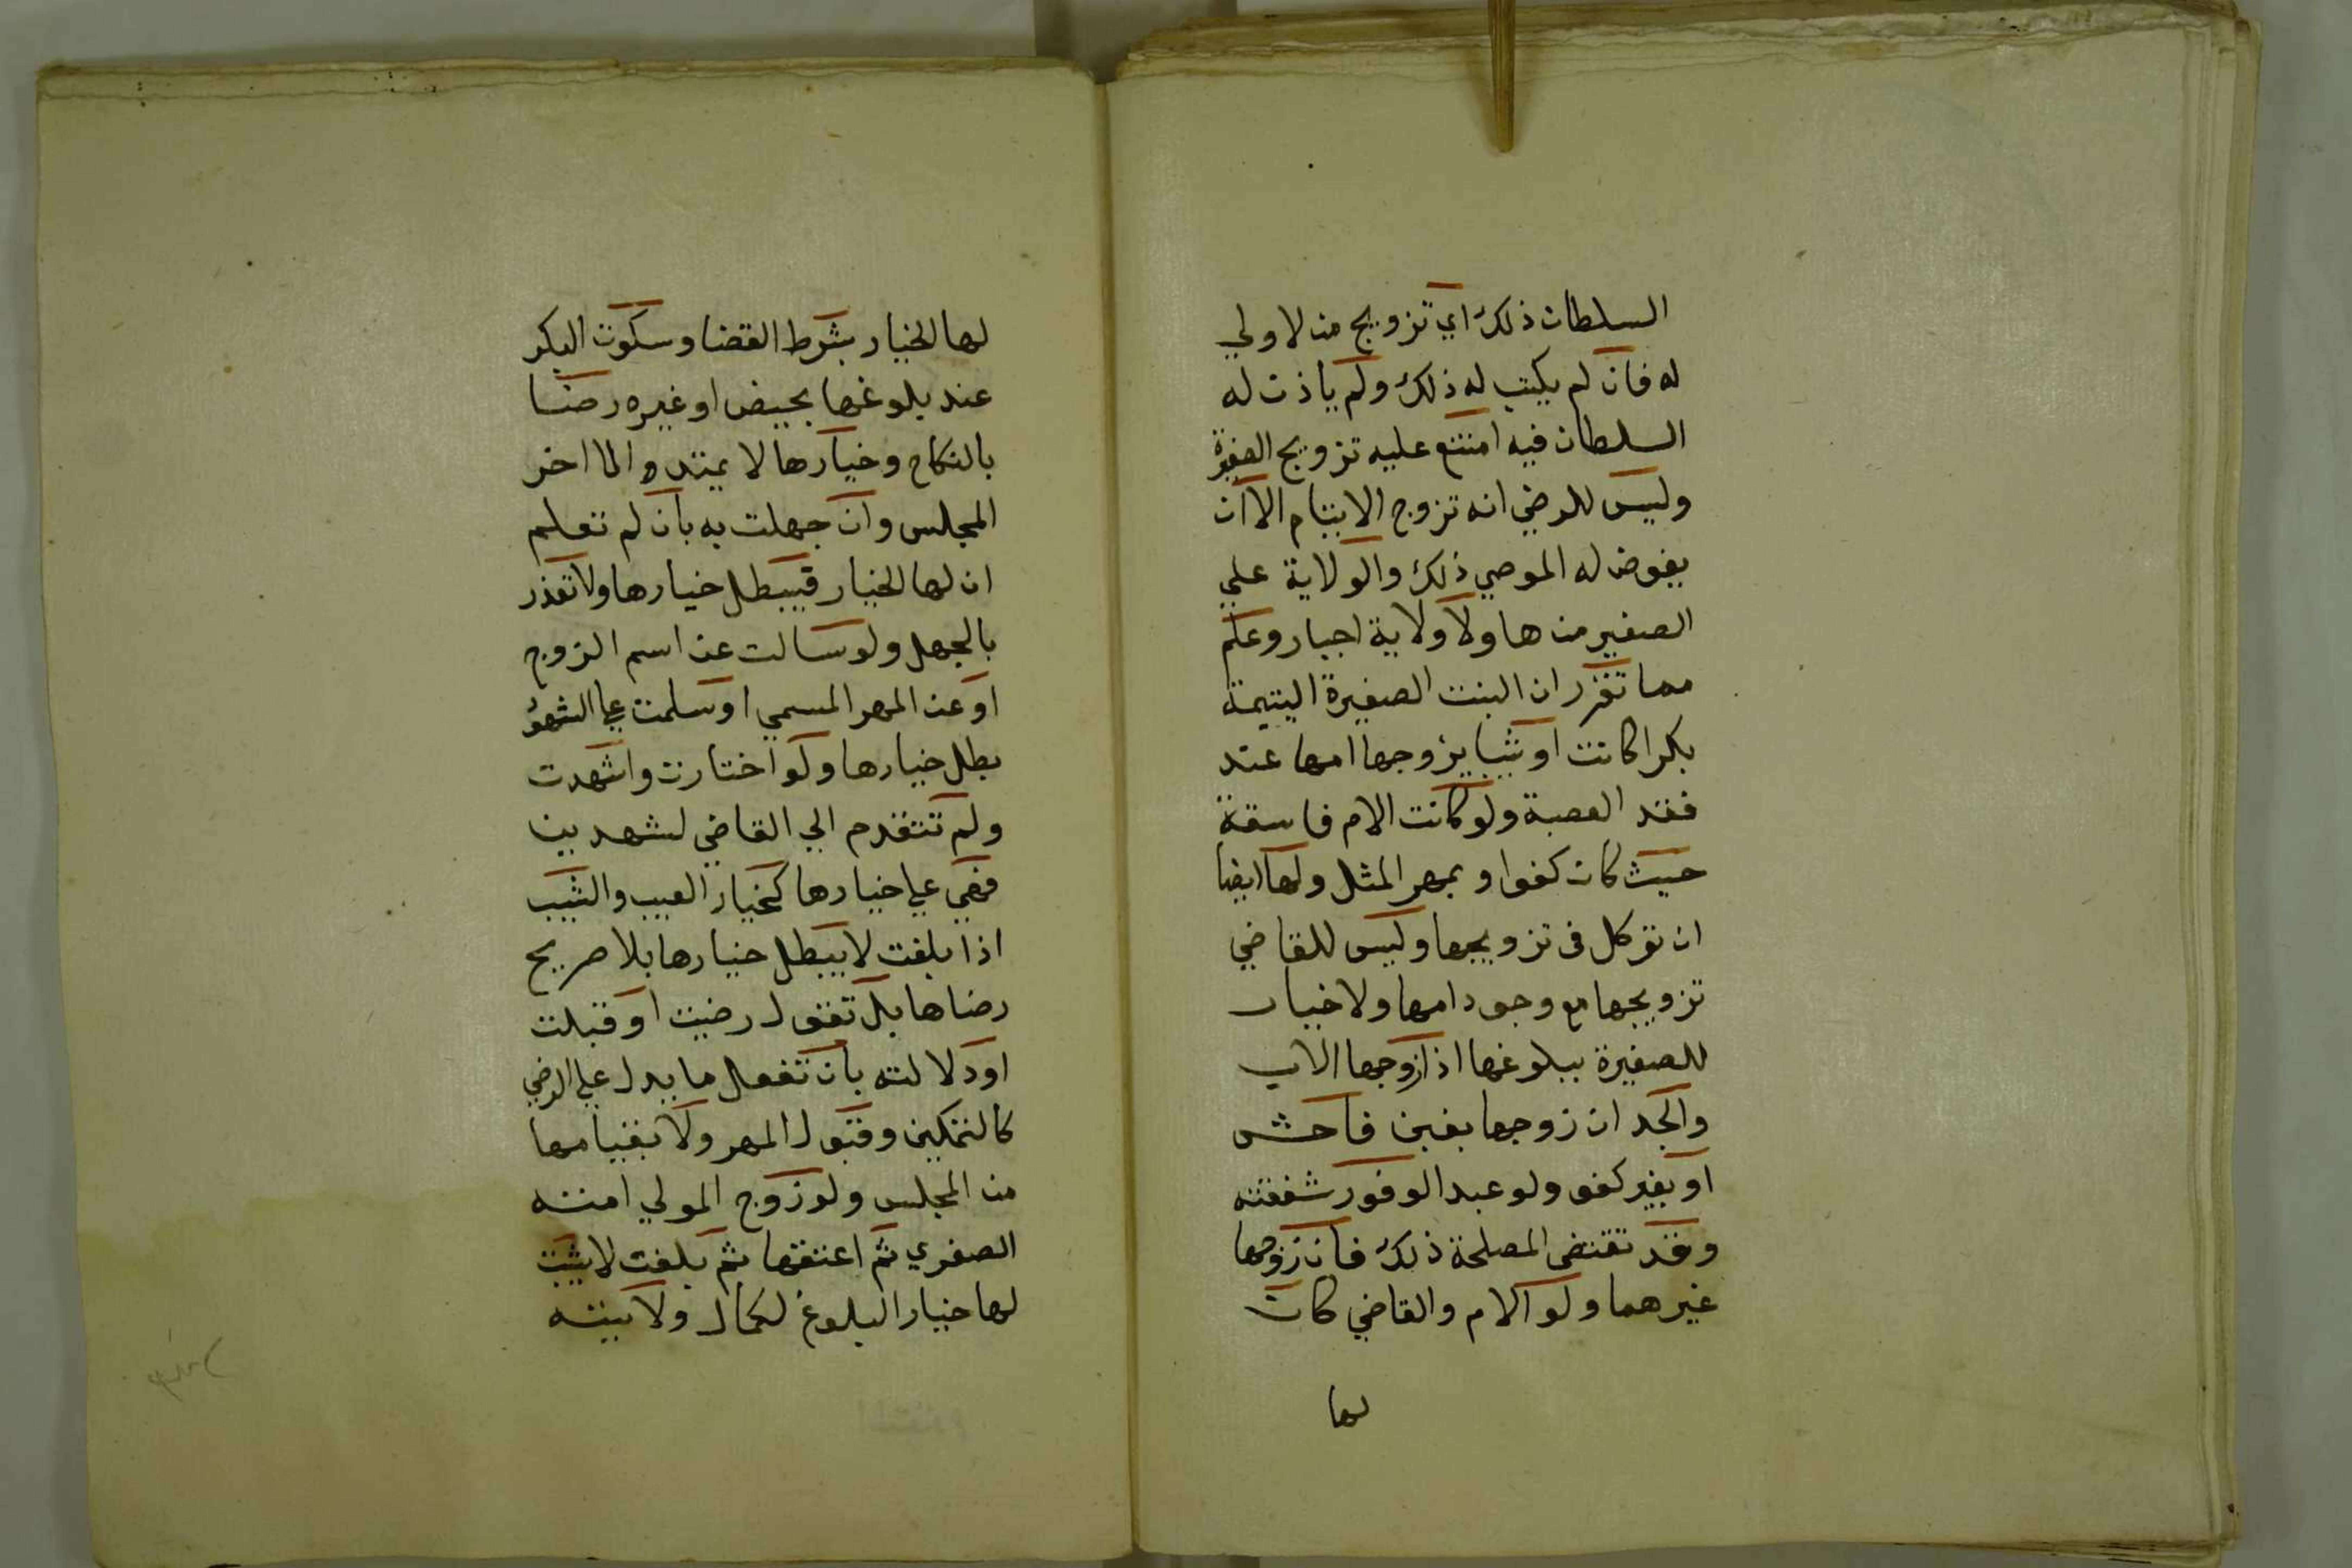 السلطان ذلك اي تزويج من لا ولي
له فان لم يكتب له ذلك ولم ياذن له
السلطان فيه امتنع عليه تزويج الصغيرة
وليس للوصي انه تزوج الايتام الا ان
يفوض له الموصي ذلك والولاية علي
الصغير من هاولا ولاية اجبار وعلم
مما تقرر ان البنت الصغيرة اليتيمة
بكرا كانت او ثيبا يزوجها امها عند
فقد العصبة ولو كانت الام فاسقة
حيث كان كفوا وبمهر المثل ولها ايضا
ان توكل في تزويجها وليس للقاضي
تزويجها مع وجود امها ولا خيار
للصغيرة ببلوغها اذا زوجها الاب
والجد ان زوجها بغبن فاحش
او بغير كفو ولو عبدا لوفور شفقته
وقد تقتضي المصلحة ذلك فان زوجها
غيرهما ولو الام والقاضي كان
لها
لها الخيار بشرط القضا وسكوت البكر
عند بلوغها بحيض او غيره رضا
بالنكاح وخيارها لا يمتد الي اخر
المجلس وان جهلت به بان لم تعلم
ان لها الخيار فيبطل خيارها ولا تعذر
بالجهل ولو سالت عن اسم الزوج
او عن المهر المسمي او سلمت علي الشهود
بطل خيارها ولو اختارت واشهدت
ولم تتقدم الي القاضي لشهدين
فهي علي خيارها كخيار العيب والثيب
اذا بلغت لا يبطل خيارها بلا صريح
رضاها بل تقول رضيت او قبلت
او دلالته بان تفعل ما يدل علي الرضي
كالتمكين وقبول المهر ولا بقيامها
من المجلس ولو زوج المولي امته
الصغري ثم اعتقها ثم بلغت لا يثبت
لها خيار البلوغ لكمال ولايته